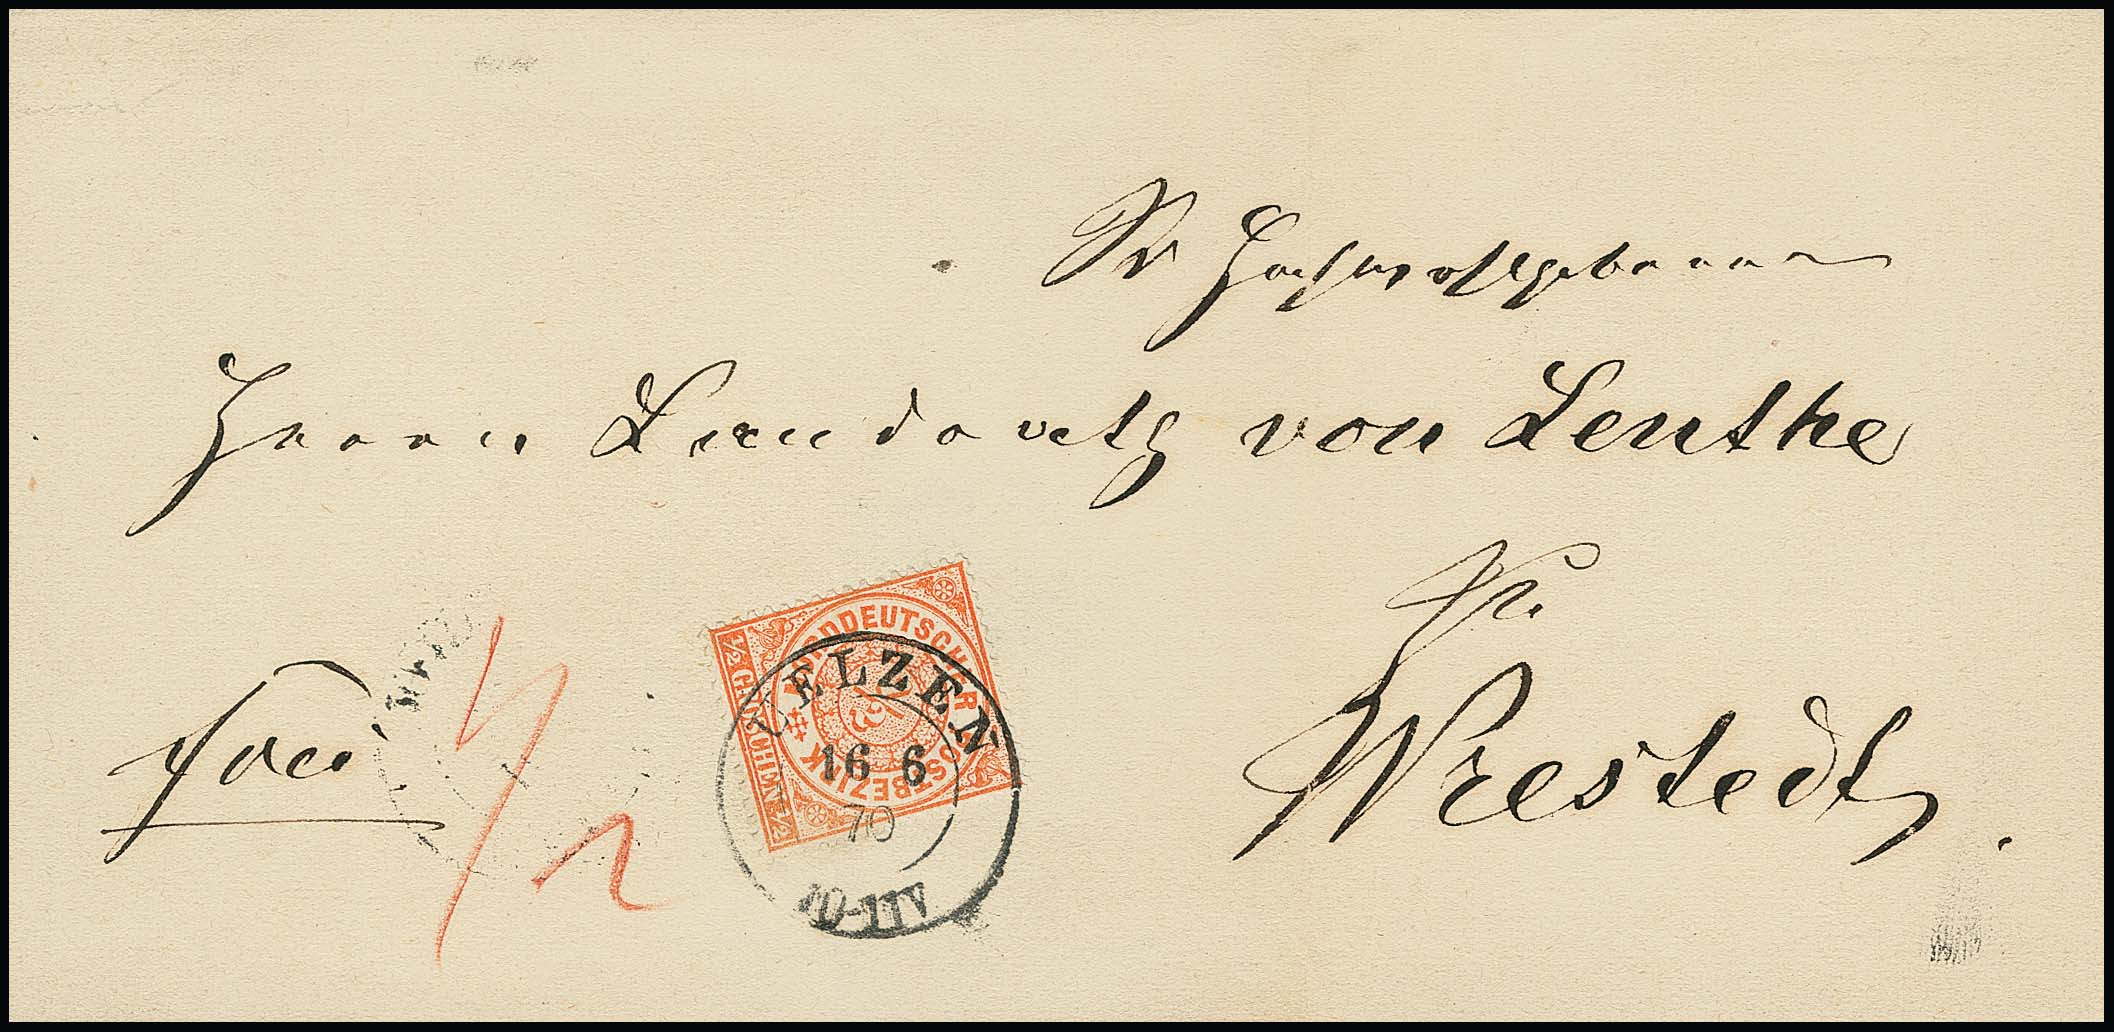 Sr Hochwohlgeboren
Herrn Landrath von Lenthe
Zu
Wrestedt.
frei
1/2
NORDDEUTSCHER POSTBEZIRK
1/2 GROSCHEN 1/2
1/2
UELZEN
16 6
70
10-11 V